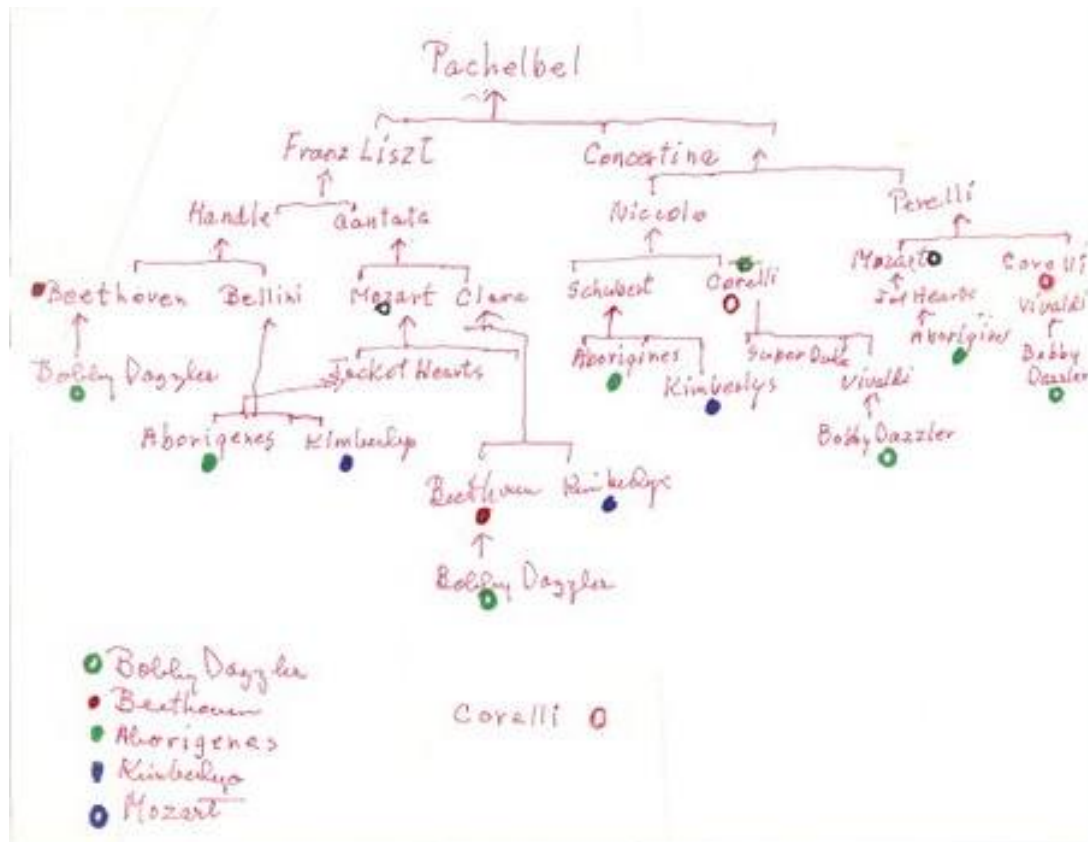 Pachelbel
Franz Liszt Concertina
Handle Cantata Niccolo Perelli
Beethoven Bellini Mozart Clara Schubert Corelli Mozart Corelli
Jack of Hearts Aborigines Super Dule Jof Hearts Vivaldi
Bobby Dazzler Kimberlys Vivaldi Aborigines Bobby Dazzler
Aborigenes Kimberlys Bobby Dazzler
Beethoven Kimberlys
Bobby Dazzler
Bobby Dazzler
Beethoven
Aborigenes
Kimberlys
Mozart
Corelli